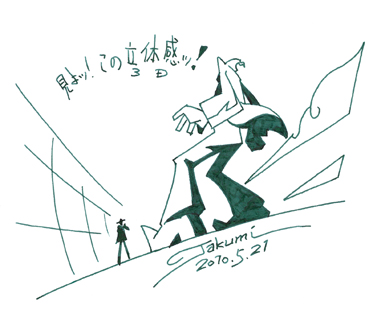 見よッ!この立体感ッ!
3D
Takumi
2010.5.21